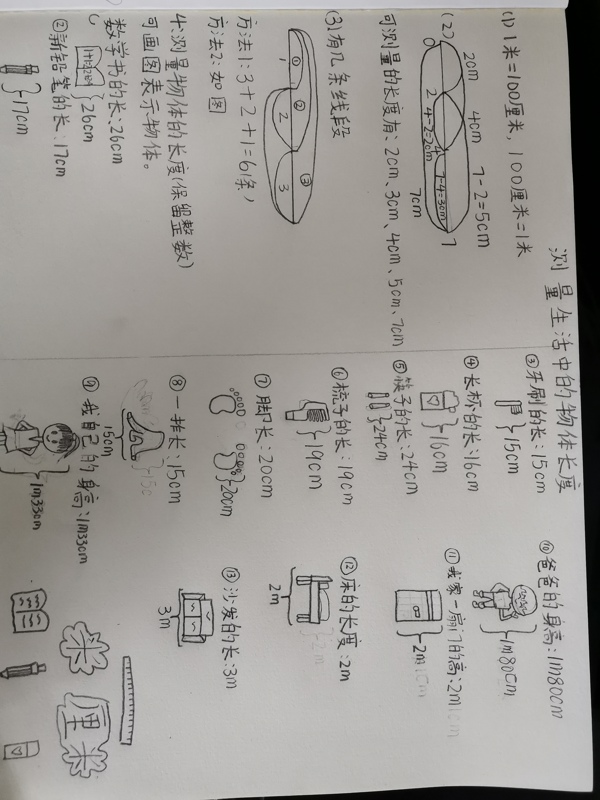 测量生活中的物体长度
(1) 1米=100厘米，100厘米=1米
(2)
2cm 4cm 7-2=5cm
0 2 4 7
4-2=2cm 7-4=3cm
7cm
可测量的长度有、2cm、3cm、4cm、5cm、7cm
(3)有几条线段
① ② ③
1 2 3
方法1:3+2+1=6(条)
方法2:如图
4.测量物体的长度(保留整数)
可画图表示物体。
数学书的长:26cm
26cm
②新铅笔的长:17cm
17cm
③牙刷的长:15cm
15cm
④长杯的长:16cm
16cm
⑤筷子的长:24cm
24cm
⑥梳子的长:19cm
19cm
⑦脚长:20cm
20cm
⑧一拃长:15cm
15cm
⑨我自己的身高:1m33cm
1m33cm
⑩爸爸的身高:1m80cm
1m80cm
⑪我家一扇门的高:2m
2m
⑫床的长度:2m
2m
⑬沙发的长:3m
3m
米
厘米